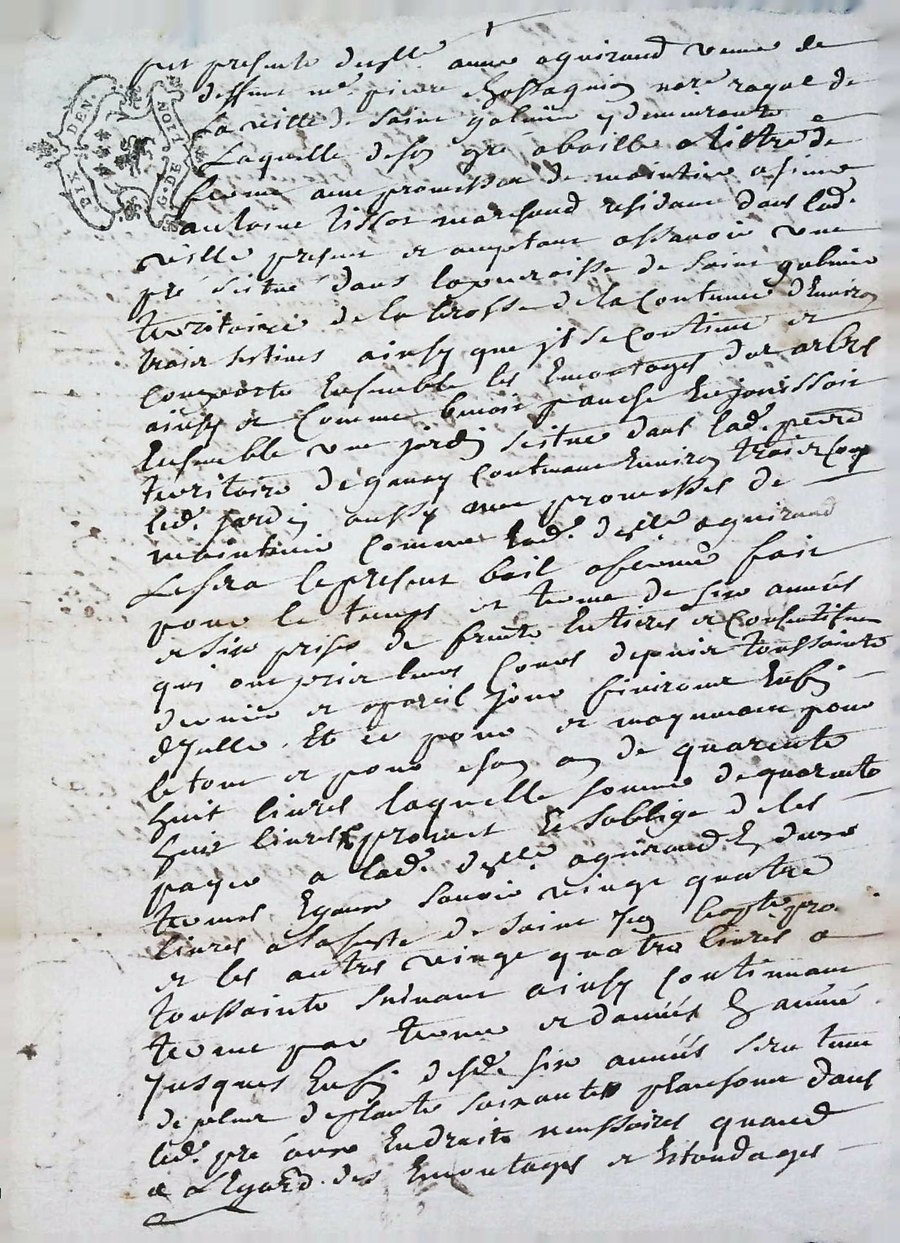 DIX DEN.
G. DE LION
fut presente dzelle anne aguiraud veuve de
deffunt me. pierre chassagnon nore. royal de
la ville de Saint galmier y demeurante
Laquelle de son gré abaille a tiltre de
ferme avec promesse de maintenir a sieur
antoine tissot marchand residant dans lad.
ville present et acceptant assavoir une
pré scitué dans la parroisse de Saint galmier
territoire de la de la Contenue d'Environ
trois sestives ainsy que jl se Contient et
Comporte Ensemble les Emontages des arbres
ainsy et Comme benoit En jouissoit
Ensemble une jardin scitue dans lad.
territoire de Contenant Environ trois Coup
led. jardin aussy avec promesses de
maintenir Comme lad. dzelle aguiraud
Le sera le present bail a ferme fait
pour le temps et terme de six années
et six prises de fruits Entieres et Consecutives
qui ont pris leurs Cours depuis toussainte
dernier et a pareil jour finiront Enfin
d'jcelle. Et ce pour et moyennant pour
le tout et pour chascun an de quarente
huit livres laquelle somme de quarente
huit livres promet Et s'oblige de les
payer a lad. dzelle aguiraud En deux
termes Egaux savoir vingt quatre
livres a la feste de Saint Jean baptiste pro.
et les autres vingt quatre livres a
toussainte suivant ainsy Continuant
terme par terme et d'année En année
Jusques Enfin desd. six années sera tenu
de planter soixante dans
led. pré aux Endroits necessaires quand
a L'Egard des Emontages et Estondages